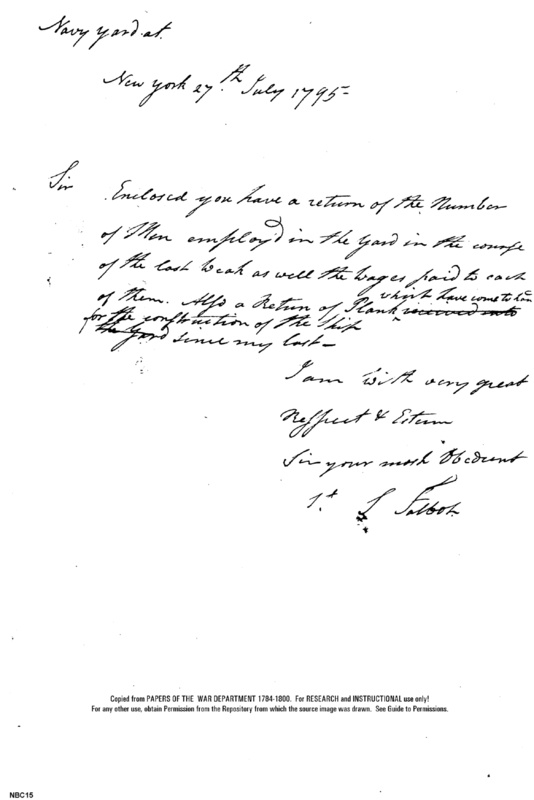 Navy yard at
New york 27.th July 1795-
Sir
Enclosed you have a return of the Number
of Men employ'd in the Yard in the course
of the last Weak as well the Wages paid to each
of them. Also a Return of Plank received into
which have come to
for the construction of the Ship
the Yard since my last-
I am With very great
Respect & Esteem
Sir your most Obedient
St
S Talbot
Copied from PAPERS OF THE WAR DEPARTMENT 1784-1800. For RESEARCH and INSTRUCTIONAL use only!
For any other use, obtain Permission from the Repository from which the source image was drawn. See Guide to Permissions.
NBC15